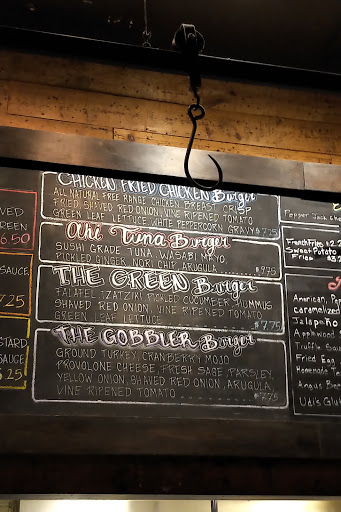 CHICKEN FRIED CHICKEN Burger
ALL NATURAL FREE RANGE CHICKEN BREAST CRISP
FRIED, SHAVED RED ONION, VINE RIPENED TOMATO
GREEN LEAF LETTUCE, WHITE PEPPERCORN GRAVY $7.25
Ahi Tuna Burger
SUSHI GRADE TUNA, WASABI MAYO,
PICKLED GINGER, NORI CHIP, ARUGULA $9.75
THE GREEN Burger
FALAFEL, TZATZIKI, PICKLED CUCUMBER, HUMMUS
SHAVED RED ONION, VINE RIPENED TOMATO
GREEN LEAF LETTUCE $7.75
THE GOBBLER Burger
GROUND TURKEY, CRANBERRY MOJO
PROVOLONE CHEESE, FRESH SAGE, PARSLEY,
YELLOW ONION, SHAVED RED ONION, ARUGULA,
VINE RIPENED TOMATO $7.75
VED
REEN
6.50
SAUCE
7.25
STARD
SAUCE
$ 25
Pepper Jack che
French Fries $2.2
Sweet Potato
Fries $3.2
American, Pep
caramelized
Jalapeño
Applewood
Truffle Sau
Fried Egg
Homemade
Angus Bee
Udi's Glut